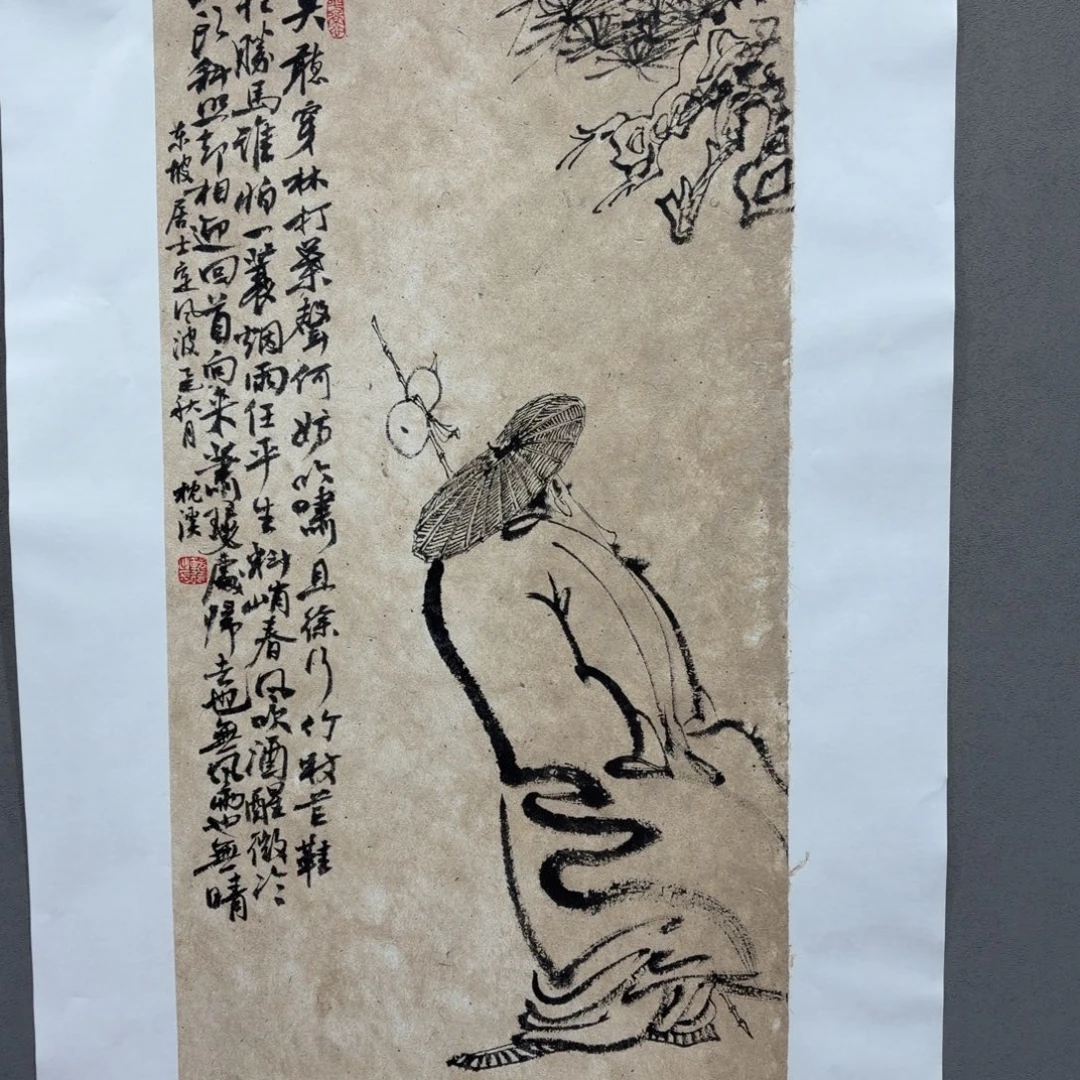 莫聽穿林打葉聲何妨吟嘯且徐行竹杖芒鞋
轻勝馬誰怕一蓑烟雨任平生料峭春风吹酒醒微冷
头斜照却相迎回首向来蕭瑟處歸去也無风雨也無晴
东坡居士定风波乙巳秋月 枕溪